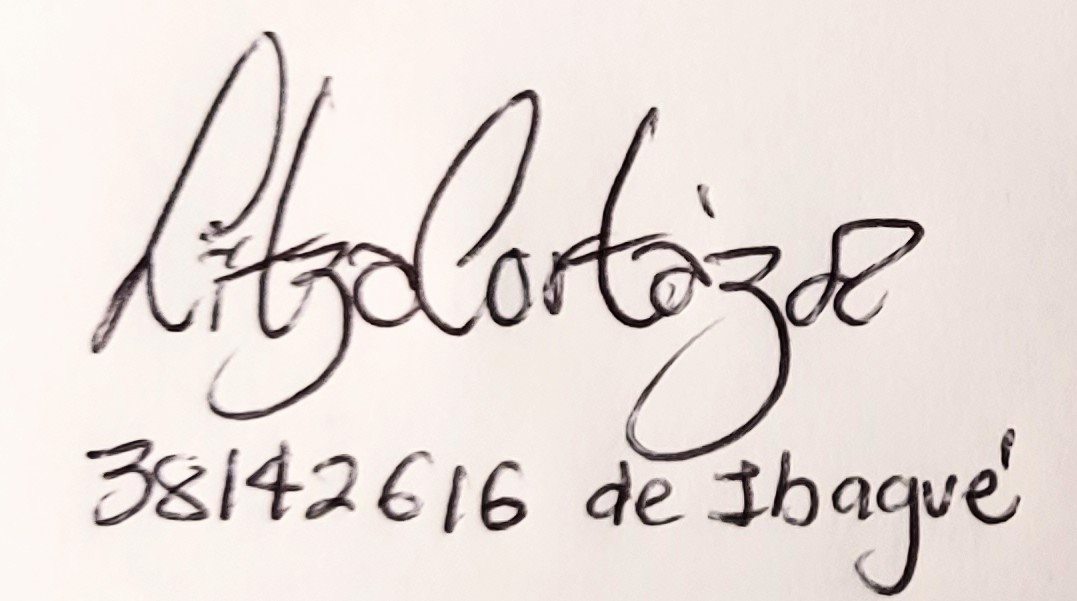 Litza Cortáz
38142616 de Ibagué